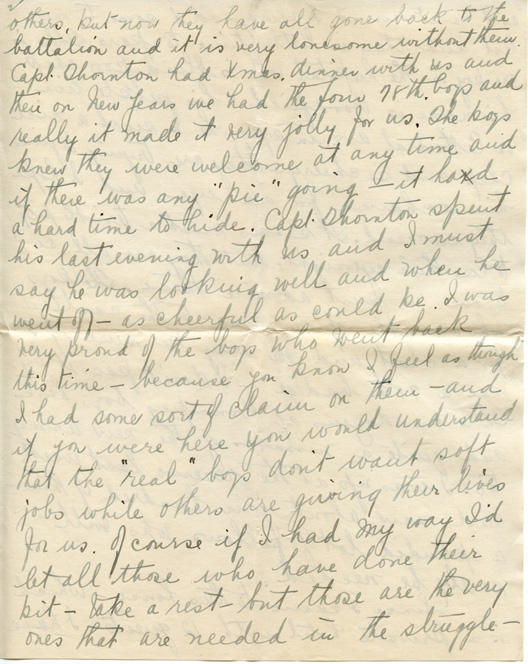 others, but now they have all gone back to the
battalion and it is very lonesome without them
Capt. Thornton had Xmas. dinner with us and
then on New Years we had the four 78th. boys and
really it made it very jolly for us. The boys
knew they were welcome at any time and
if there was any "pie" going — it had
a hard time to hide. Capt. Thornton spent
his last evening with us and I must
say he was looking well and when he
went off — as cheerful as could be. I was
very proud of the boys who went back
this time — because you know I feel as though
I had some sort of claim on them — and
if you were here you would understand
that the "real" boys don't want soft
jobs while others are giving their lives
for us. Of course if I had my way I'd
let all those who have done their
bit — take a rest — but those are the very
ones that are needed in the struggle —